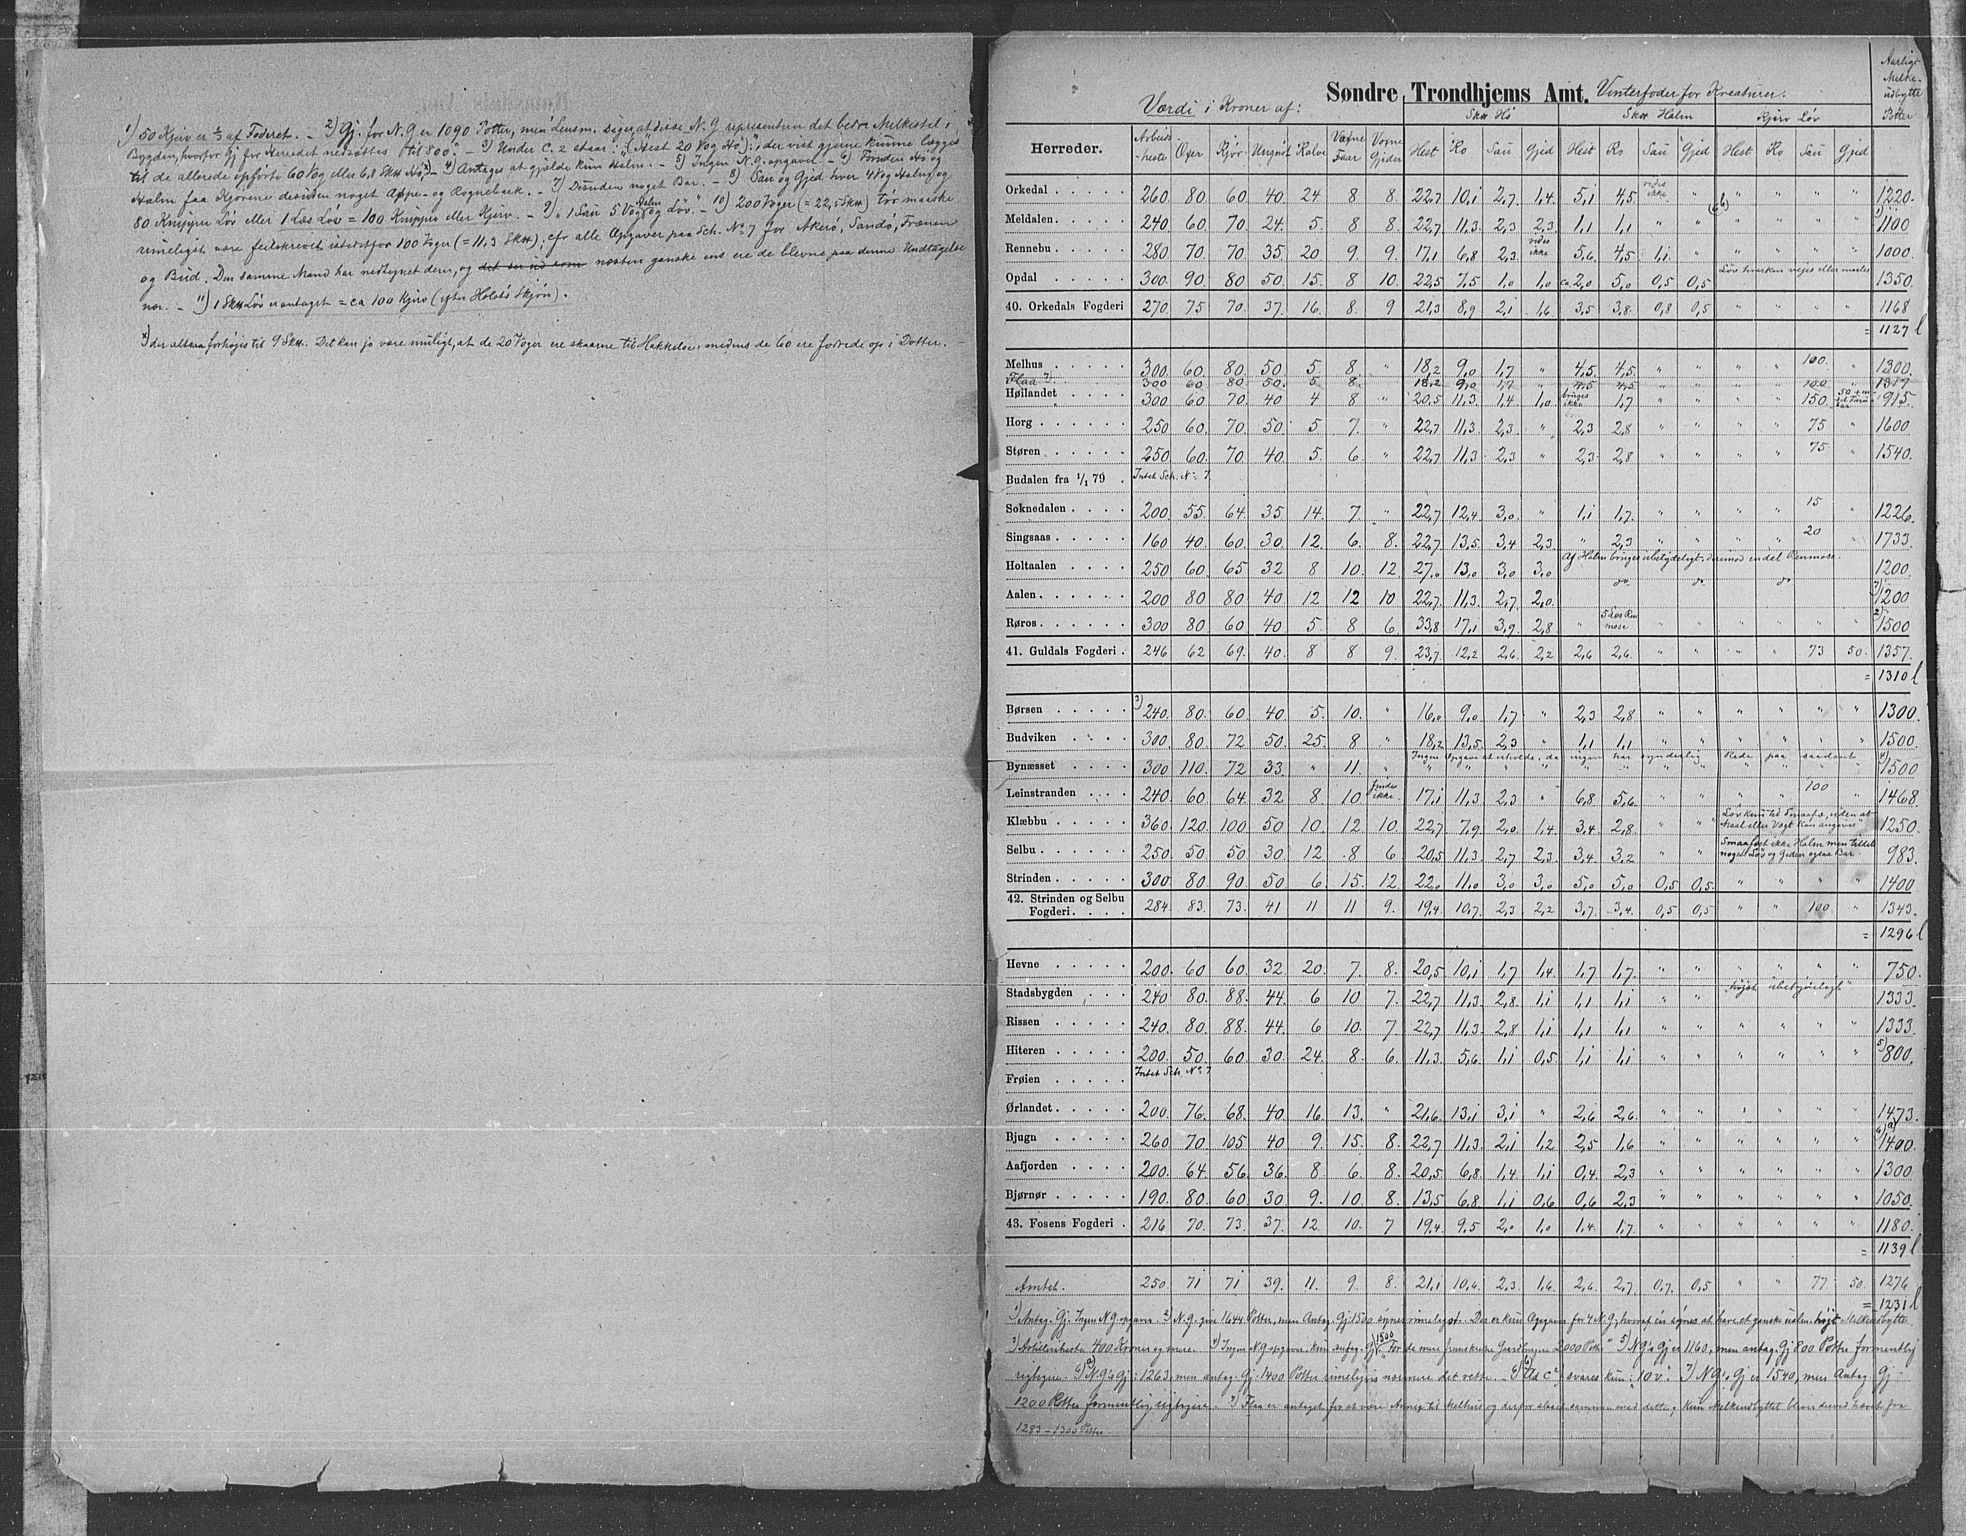 1) 50 Kjerv er ⅔ af Foderet. – 2) Gj. for N.G er 1090 Potter, men Lensm. siger, at disse N.G repræsentere det bedre Melkestel i
Bygden, hvorfor Gj for Herredet nedsættes "til 800". – 3) Under C. 2 staar: (Hest 20 Vog Hø), der vist gjerne kunne lægges
til de allerede opførte 60 Vog eller 6,8 Sk℔ Hø. – 4) Antages at gjælde kun Halm. – 5) Ingen N.G. opgavel. – 6) Foruden Hø og
Halm faa Kjørene desuden noget Aspe- og Rognebark. – 7) Desuden noget Bar. – 8) Sau og Gjed hver 4 Vog Halm og
80 Knipper Løv eller 1 Læs Løv = 100 Knipper eller Kjerv. – 9) 1 Sau 5 Vog Halm og Løv. – 10) 200 Voger (= 22,5 Sk℔) tør maaske
rimeligst være feilskrevet istedetfor 100 Voger (= 11,3 Sk℔); cfr alle Opgaver paa Sch. No 7 for Akerø, Sandø, Frænen
og Bud. Den samme Mand har nedtegnet dem, og det ser ud som næsten ganske ens ere de blevne paa denne Undtagelse
nær. – 11) 1 Sk℔ Løv er antaget = ca 100 Kjerv (efter Holsts Skjøn).
x) der altsaa forhøies til 9 Sk℔. Det kan jo være muligt, at de 20 Voger ere skaarne til Hakkelse, medens de 60 ere fodrede op i Dotter.
Søndre Trondhjems Amt.
Værdi i Kroner af: Vinterfoder for Kreaturer. Aarligt Melkeudbytte Potter
Sk℔ Hø Sk℔ Halm Kjerv Løv
Herreder. Arbeidsheste Oxer Kjør Ungnöt Kalve Voxne Faar Voxne Gjeder Hest Ko Sau Gjed Hest Ko Sau Gjed Hest Ko Sau Gjed
Orkedal 260 80 60 40 24 8 8 22,7 10,1 2,7 1,4 5,1 4,5 veies ikke " " " " " 1220
Meldalen 240 60 70 24 5 8 8 22,7 11,3 2,3 2,3 1,1 1,1 " " " " " " 1) 1100
Rennebu 280 70 70 35 20 9 9 17,1 6,8 2,3 veies ikke 5,6 4,5 1,1 " " " " " 1000
Opdal 300 90 80 50 15 8 10 22,5 7,5 1,0 1,0 ca 2,0 5,0 0,5 0,5 Løv hverken veies eller maales 1350
40. Orkedals Fogderi 270 75 70 37 16 8 9 21,3 8,9 2,1 1,6 3,5 3,8 0,8 0,5 " " " " 1168
= 1127 l
Melhus 300 60 80 50 5 8 " 18,2 9,0 1,7 " 4,5 4,5 " " " " 100 " 1300
Flaa 7) 300 60 80 50 5 8 18,2 9,0 1,7 " 4,5 4,5 " " " " 100 " 1317
Høilandet 300 60 70 40 4 8 " 20,5 11,3 1,4 1,0 bruges ikke 1,7 " " " " 150 50 915
Horg 250 60 70 50 5 7 " 22,7 11,3 2,3 " 2,3 2,8 " " " " 75 " 1600
Støren 250 60 70 40 5 6 " 22,7 11,3 2,3 " 2,3 2,8 " " " " 75 " 1540
Budalen fra 1/1 79 Intet Sch. No 7
Soknedalen 200 55 64 35 14 7 " 22,7 12,4 3,0 " 1,1 1,7 " " " " 15 " 1226
Singsaas 160 40 60 30 12 6 8 22,7 13,5 3,4 2,3 " 2,3 " " " " 20 " 1733
Holtaalen 250 60 65 32 8 10 12 27,0 13,0 3,0 3,0 Af Halm bruges ubetydeligt, derimod endel Renmose. 1200
Aalen 200 80 80 40 12 12 10 22,7 11,3 2,7 2,0 do do do 7) 1200
Røros 300 80 60 40 5 8 6 33,8 17,1 3,9 2,8 " 5 Læs Renmose " " " " " " 2) 1500
41. Guldals Fogderi 246 62 69 40 8 8 9 23,7 12,2 2,6 2,2 2,6 2,6 " " " " 73 50 1357
= 1310 l
Børsen 3) 240 80 60 40 5 10 " 16,0 9,0 1,7 " 2,3 2,8 " " " " " " 1300
Budviken 300 80 72 50 25 8 " 18,2 13,5 2,3 " 1,1 1,1 " " " " " " 1500
Bynæsset 300 110 72 33 " 11 " Ingen Opgave at erholde, da ingen har synderlig Rede paa saadant 4) 1500
Leinstranden 240 60 64 32 8 10 findes ikke 17,1 11,3 2,3 " 6,8 5,6 " " " " 100 " 1468
Klæbbu 360 120 100 50 10 12 10 22,7 7,9 2,0 1,4 3,4 2,8 " " Løv kun til Smaafæ, uden at Maal eller Vægt kan angives 1250
Selbu 250 50 50 30 12 8 6 20,5 11,3 2,7 2,3 3,4 3,2 " " Smaafæet ikke Halm men tildels noget Løv og Geden ogsaa Bar 983
Strinden 300 80 90 50 6 15 12 22,0 11,0 3,0 3,0 5,0 5,0 0,5 0,5 " " " " 1400
42. Strinden og Selbu Fogderi 284 83 73 41 11 11 9 19,4 10,7 2,3 2,2 3,7 3,4 0,5 0,5 " " 100 " 1343
= 1296 l
Hevne 200 60 60 32 20 7 8 20,5 10,1 1,7 1,4 1,7 1,7 " " " " " " 750
Stadsbygden 240 80 88 44 6 10 7 22,7 11,3 2,8 1,1 1,1 1,1 " " "høist ubetydeligt" 1333
Rissen 240 80 88 44 6 10 7 22,7 11,3 2,8 1,1 1,1 1,1 " " " " " " 1333
Hiteren 200 50 60 30 24 8 6 11,3 5,6 1,1 0,5 1,1 1,1 " " " " " " 5) 800
Frøien Intet Sch. No 7
Ørlandet 200 76 68 40 16 13 " 21,6 13,1 3,1 " 2,6 2,6 " " " " " " 1473
Bjugn 260 70 105 40 9 15 8 22,7 11,3 2,1 1,2 2,5 1,6 " " " " " " 6)a) 1400
Aafjorden 200 64 56 36 8 6 8 20,5 6,8 1,4 1,1 0,4 2,3 " " " " " " 1300
Bjørnør 190 80 60 30 9 10 8 13,5 6,8 1,1 0,6 0,6 2,3 " " " " " " 1050
43. Fosens Fogderi 216 70 73 37 12 10 7 19,4 9,5 2,0 1,0 1,4 1,7 " " " " " " 1180
= 1139 l
Amtet 250 71 71 39 11 9 8 21,1 10,6 2,3 1,6 2,6 2,7 0,7 0,5 " " 77 50 1276
= 1231 l
1) Antag. Gj. Ingen N.G opgavne. 2) N.G. give 1644 Potter, men Antag. Gj. 1500 synes rimeligst. Der er kun Opgaver for 4 N.G, hvoraf én synes at have et ganske ualm. høit Melkeudbytte
3) Artilleriheste 400 Kroner og mere. 4) Ingen N.G opgavne, kun antag. Gj. 1500 "For de mer fremskredne Gaardbrugere 2000 Potter" 5) N.G's Gj er 1160, men antag. Gj 800 Potter formentlig
rigtigere. 6)a) N.G's Gj: 1263, men antag. Gj. 1400 Potter rimeligvis nærmere det rette. – 6)b) Ad C2) svares kun: "10 v". 7) N.G's Gj er 1540, men Antag. Gj.
1200 Potter formentlig rigtigere. 7) Flaa er antaget for at være Annex til Melhus og derfor slaaet sammen med dette; kun Melkeudbyttet blev derved hævet fra
1283–1300 Potter.